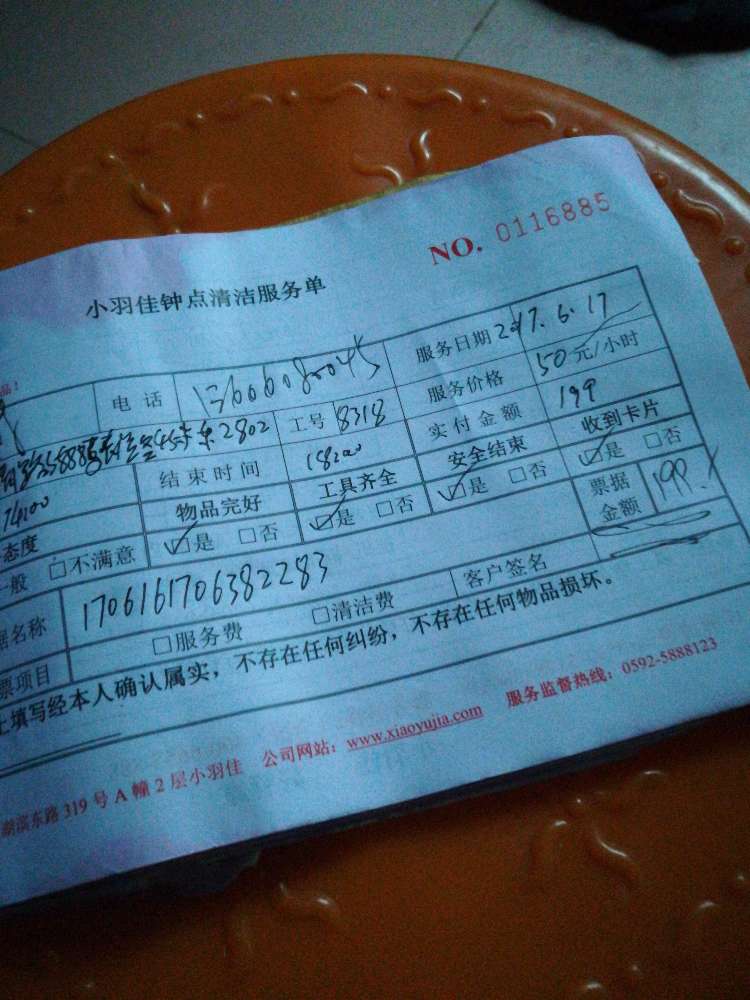 NO. 0116885
小羽佳钟点清洁服务单
品！
电话 13606080045 服务日期 2017.6.17
2802 工号 8318 服务价格 50元/小时
结束时间 18:00 实付金额 199
14:00 物品完好 工具齐全 安全结束 收到卡片
态度 ☑是 □否 ☑是 □否 ☑是 □否 ☑是 □否
一般 □不满意 票据金额 199.
据名称 1706161706382283 客户签名
票项目 □服务费 □清洁费
上填写经本人确认属实，不存在任何纠纷，不存在任何物品损坏。
湖滨东路319号A幢2层小羽佳 公司网站：www.xiaoyujia.com 服务监督热线：0592-5888123